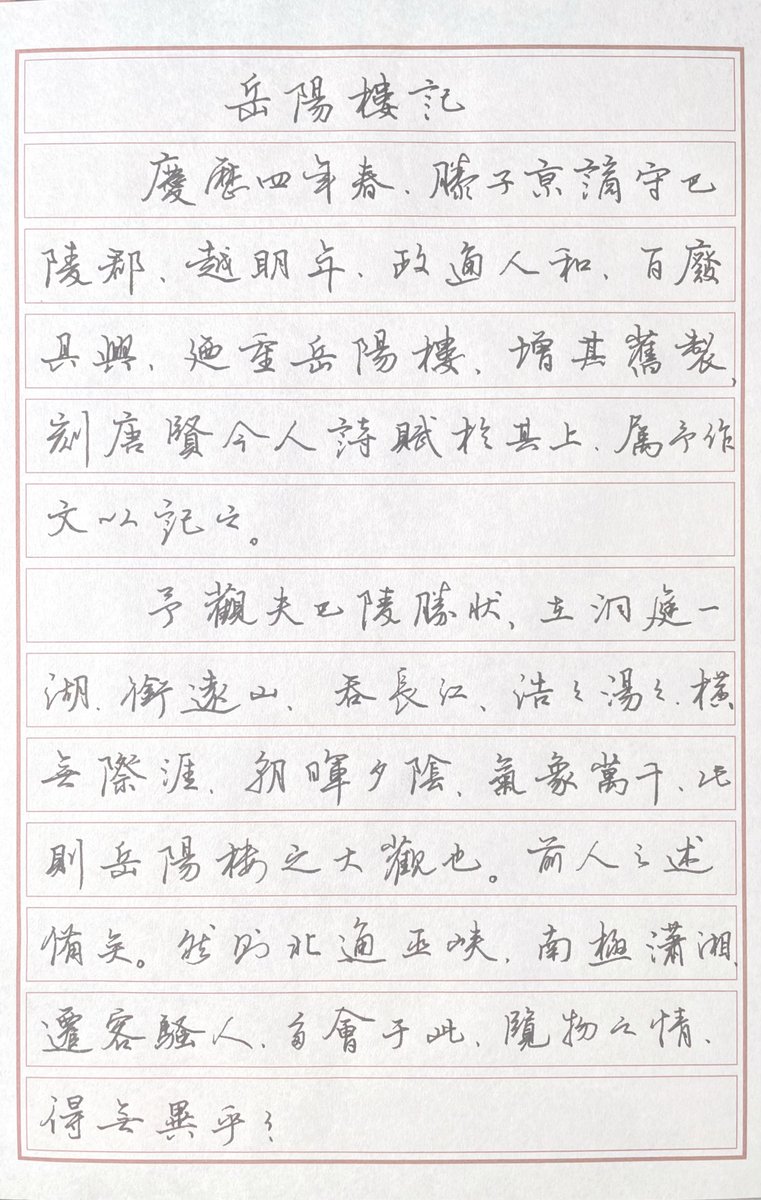 岳陽樓記
慶歷四年春、滕子京謫守巴
陵郡、越明年、政通人和、百廢
具興、廼重岳陽樓、增其舊製,
刻唐賢今人詩賦於其上、属予作
文以記之。
予觀夫巴陵勝狀、在洞庭一
湖、銜遠山、吞長江、浩々湯々、橫
無際涯、朝暉夕陰、氣象萬千、此
則岳陽樓之大觀也。前人之述
備矣。然則北通巫峽、南極瀟湘、
遷客騷人、多會于此、覽物之情、
得無異乎?